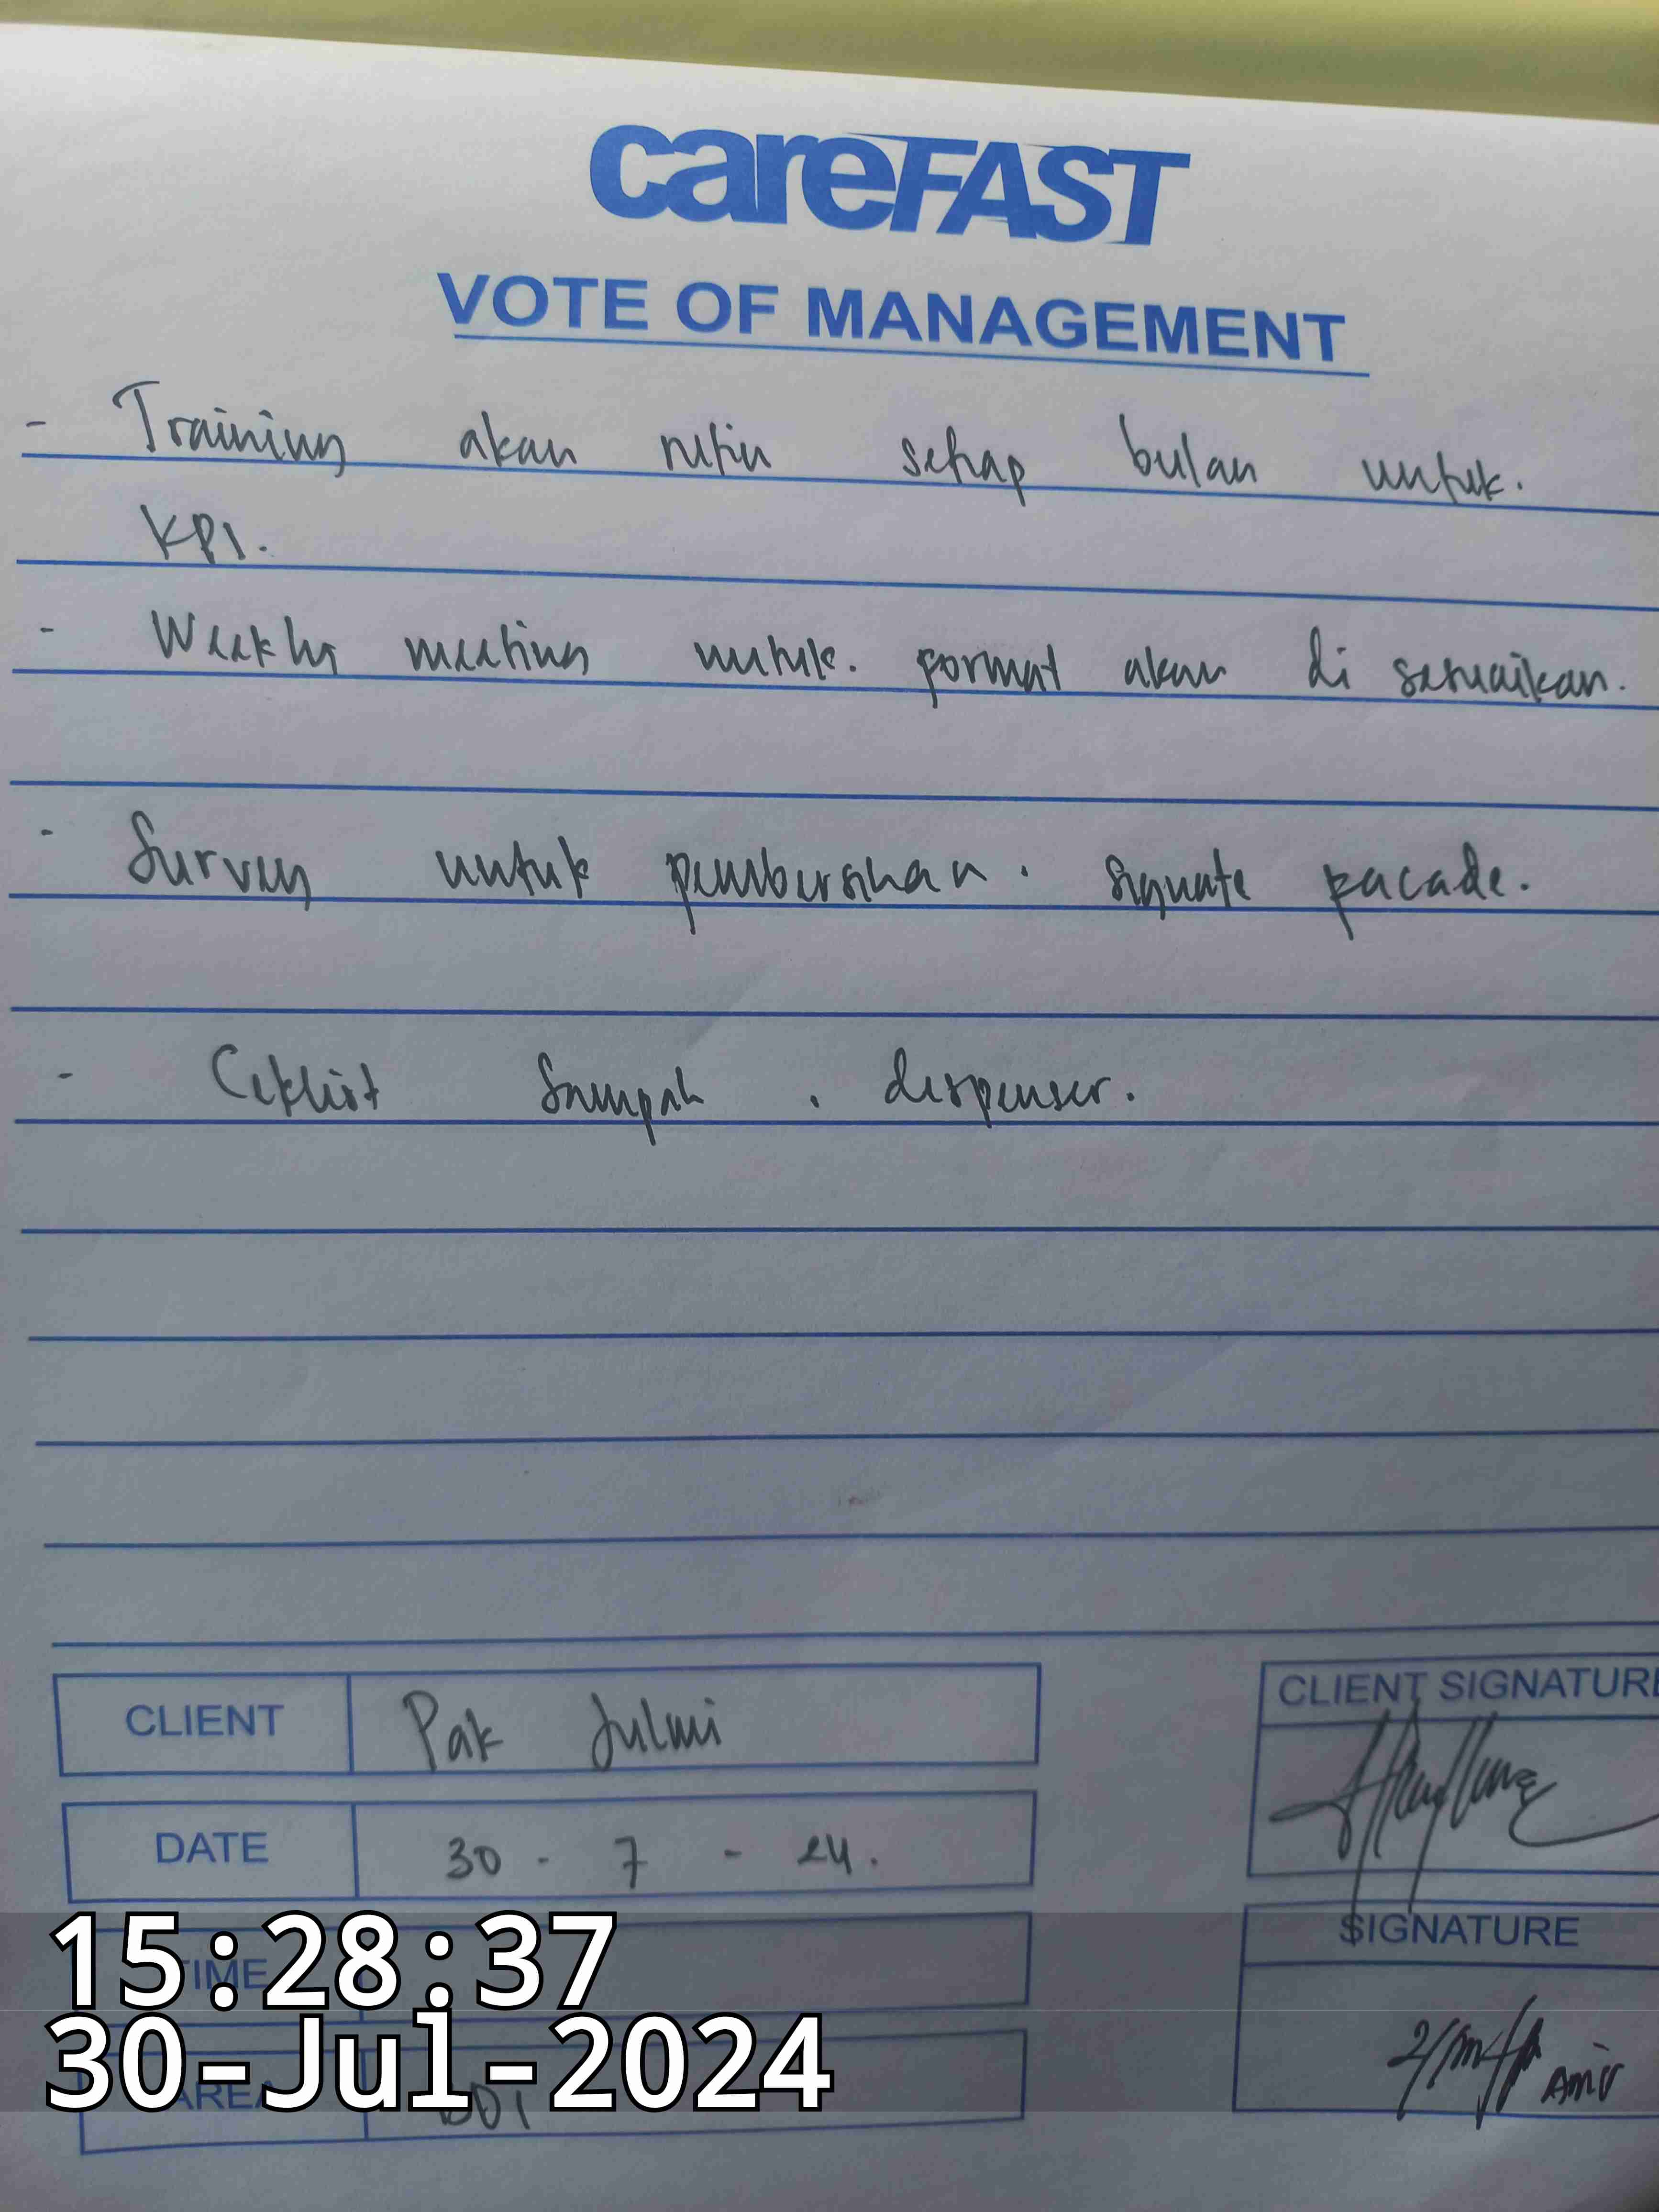 careFAST
VOTE OF MANAGEMENT
- Training akan rutin setiap bulan untuk.
KPI.
- Weekly meeting untuk. format akan di sesuaikan.
- Survey untuk pembersihan. signate facade.
- Ceklist Sampah . dispenser.
CLIENT Pak Julmi
CLIENT SIGNATURE
DATE 30 - 7 - 24.
SIGNATURE
TIME
15:28:37
30-Jul-2024
AREA
Amir